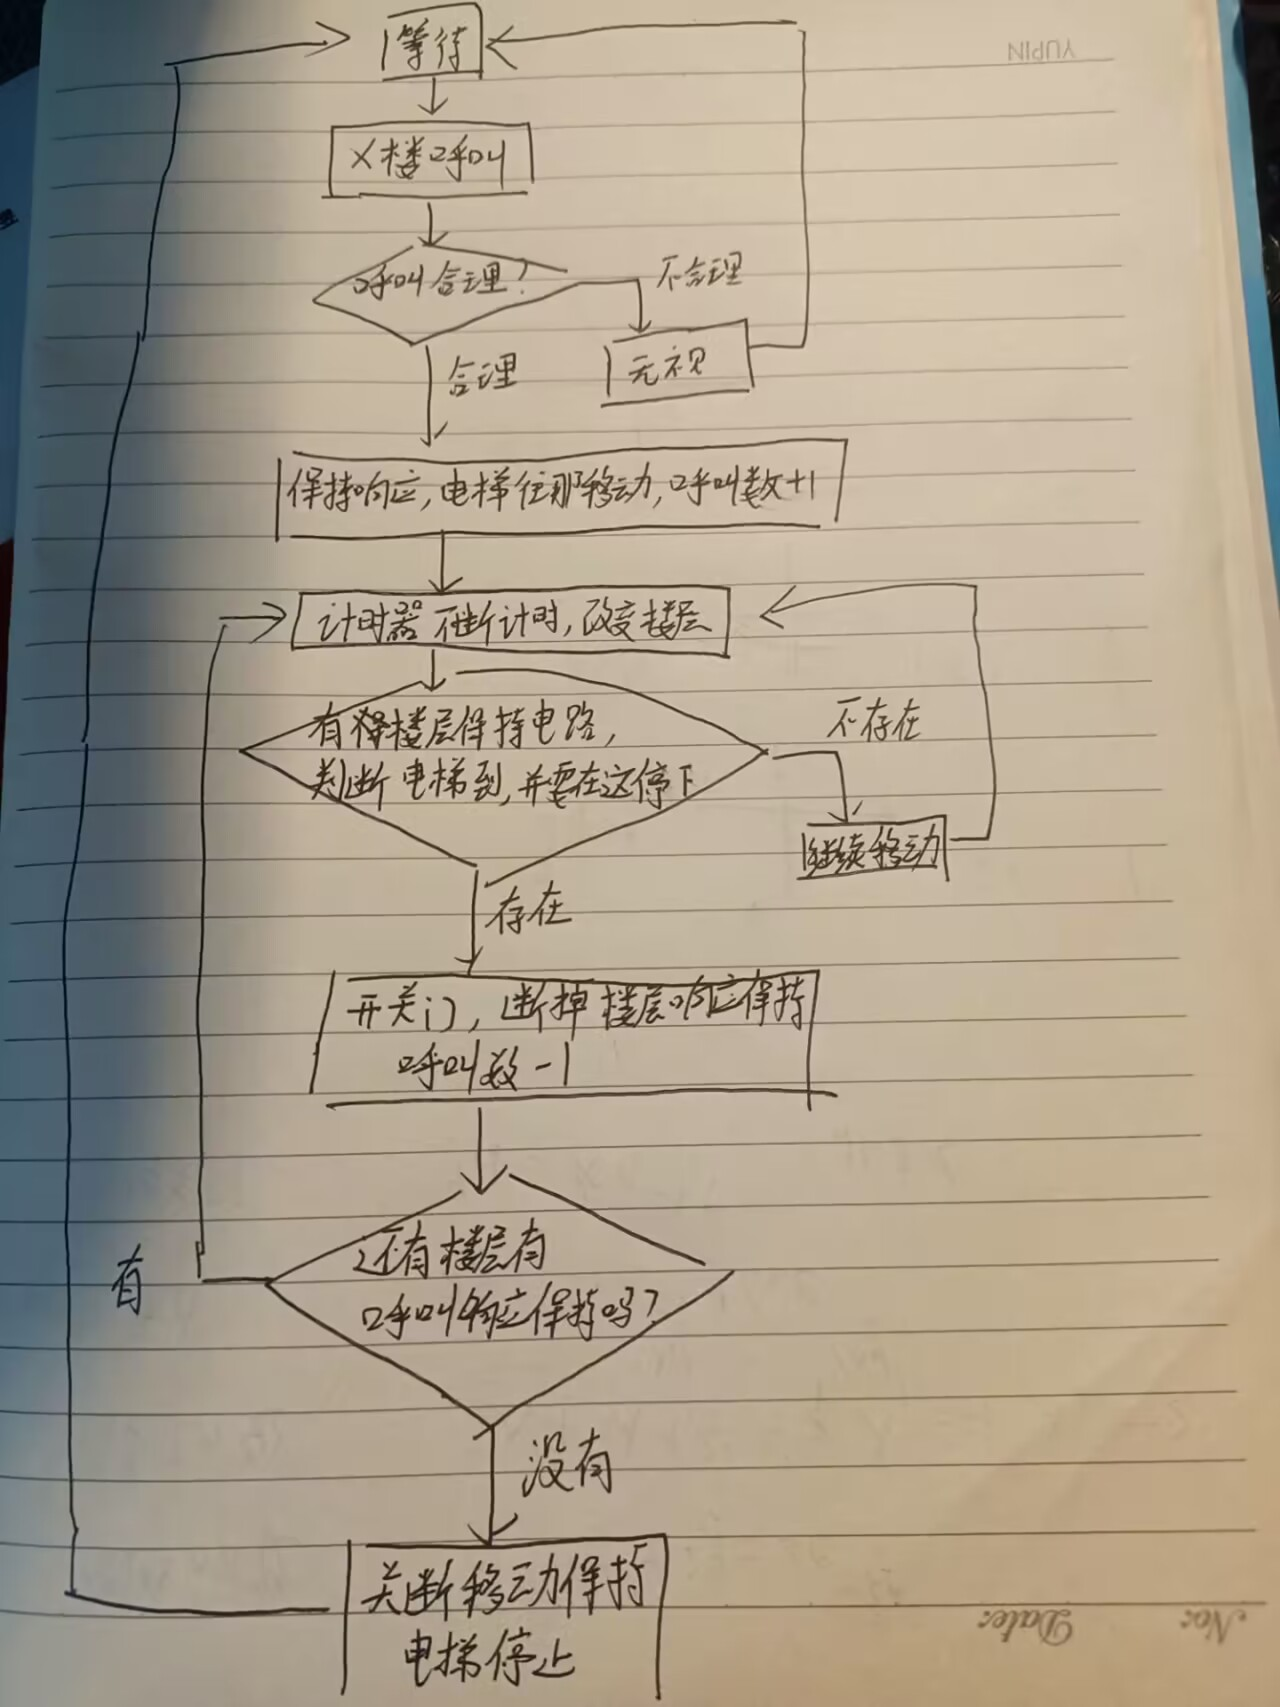 YUPIN
等待
X楼呼叫
呼叫合理?
不合理
无视
合理
保持响应,电梯往那移动,呼叫数+1
计时器不断计时,改变楼层
有将楼层保持电路,
判断电梯到,并要在这停下
不存在
继续移动
存在
开关门,断掉楼层响应保持
呼叫数-1
还有楼层有
呼叫响应保持吗?
有
没有
关断移动保持
电梯停止
No:
Date: